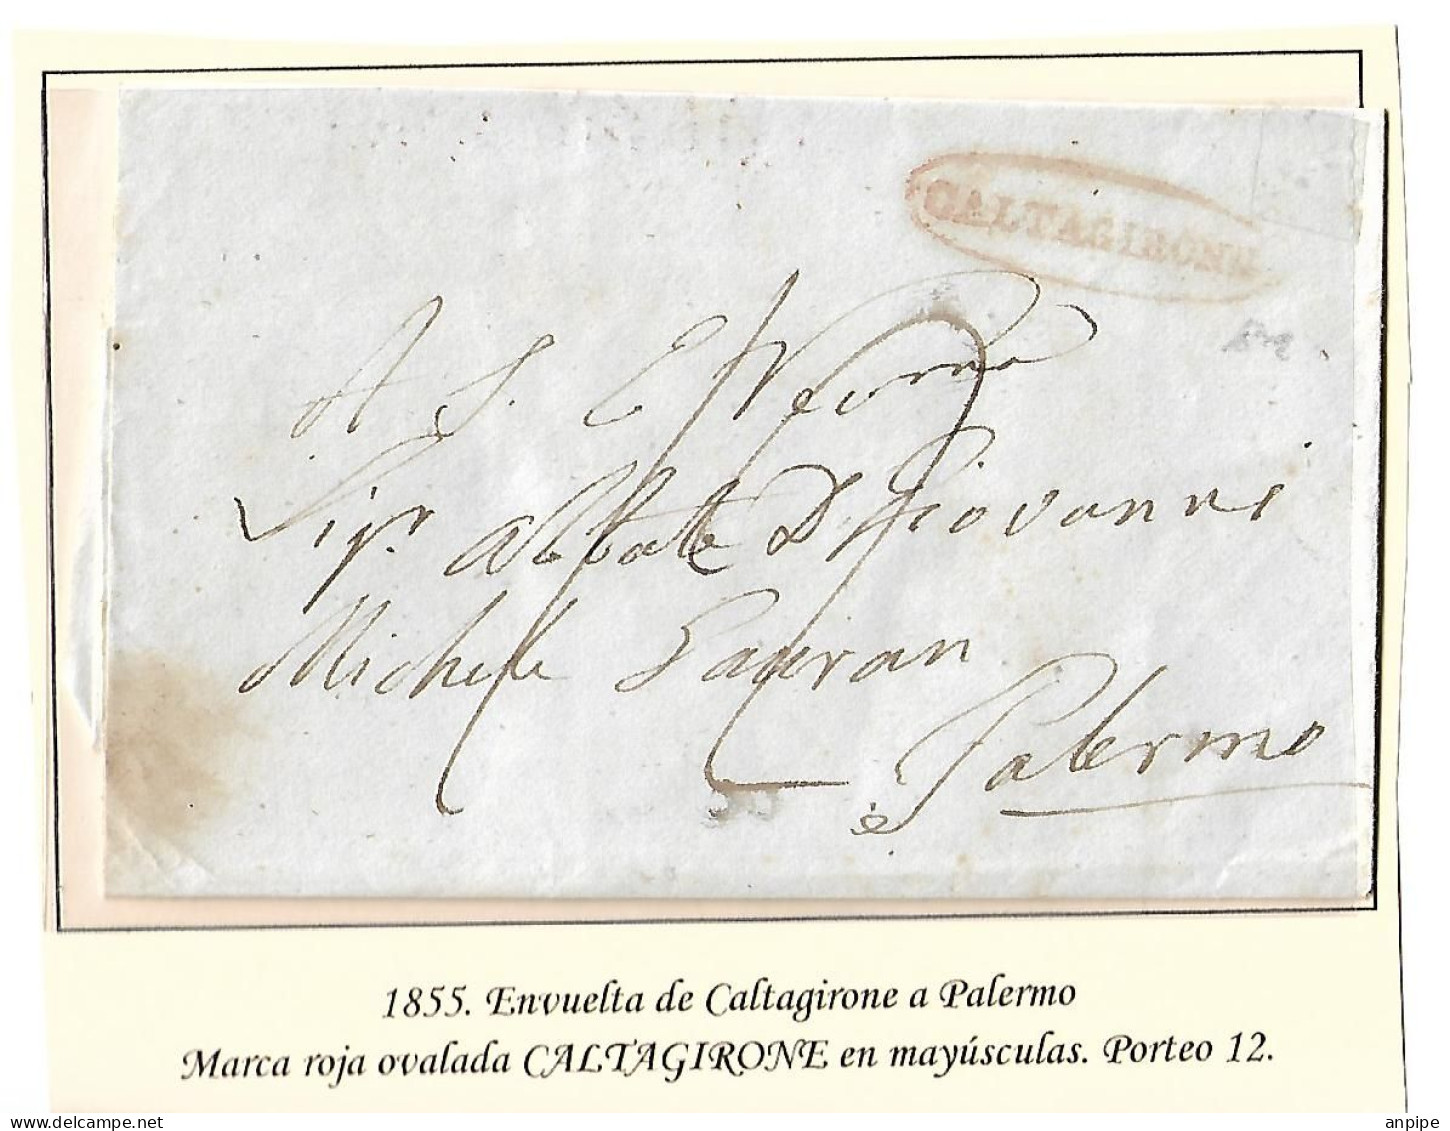 CALTAGIRONE
A S. E
Sig.r Abbate D Giovanni
Michele
Palermo
12
1855. Envuelta de Caltagirone a Palermo
Marca roja ovalada CALTAGIRONE en mayúsculas. Porteo 12.
delcampe.net
anpipe